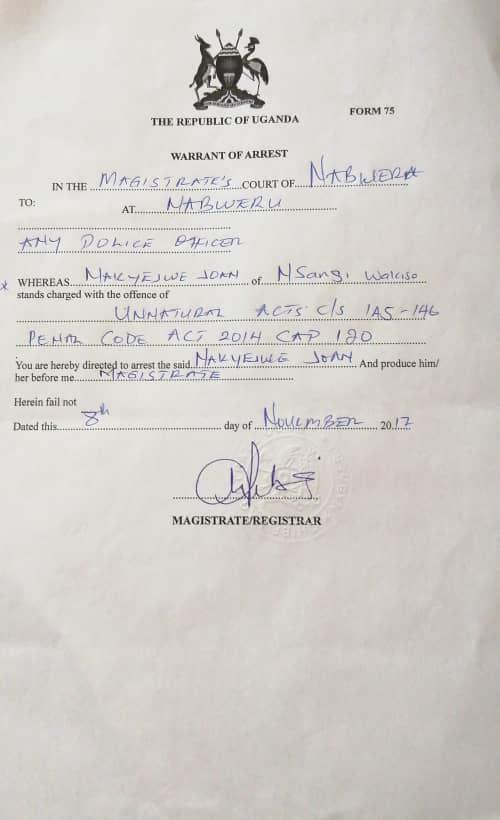 THE REPUBLIC OF UGANDA
FORM 75
WARRANT OF ARREST
IN THE MAGISTRATE'S COURT OF NABWERU
TO:
AT NABWERU
ANY POLICE OFFICER
x WHEREAS NAKYEJWE JOAN of NSangi Wakiso
stands charged with the offence of
UNNATURAL ACTS C/S 145-146
PENAL CODE ACT 2014 CAP 120
You are hereby directed to arrest the said NAKYEJWE JOAN And produce him/
her before me MAGISTRATE
Herein fail not
Dated this 8th day of NOVEMBER 2017
MAGISTRATE/REGISTRAR